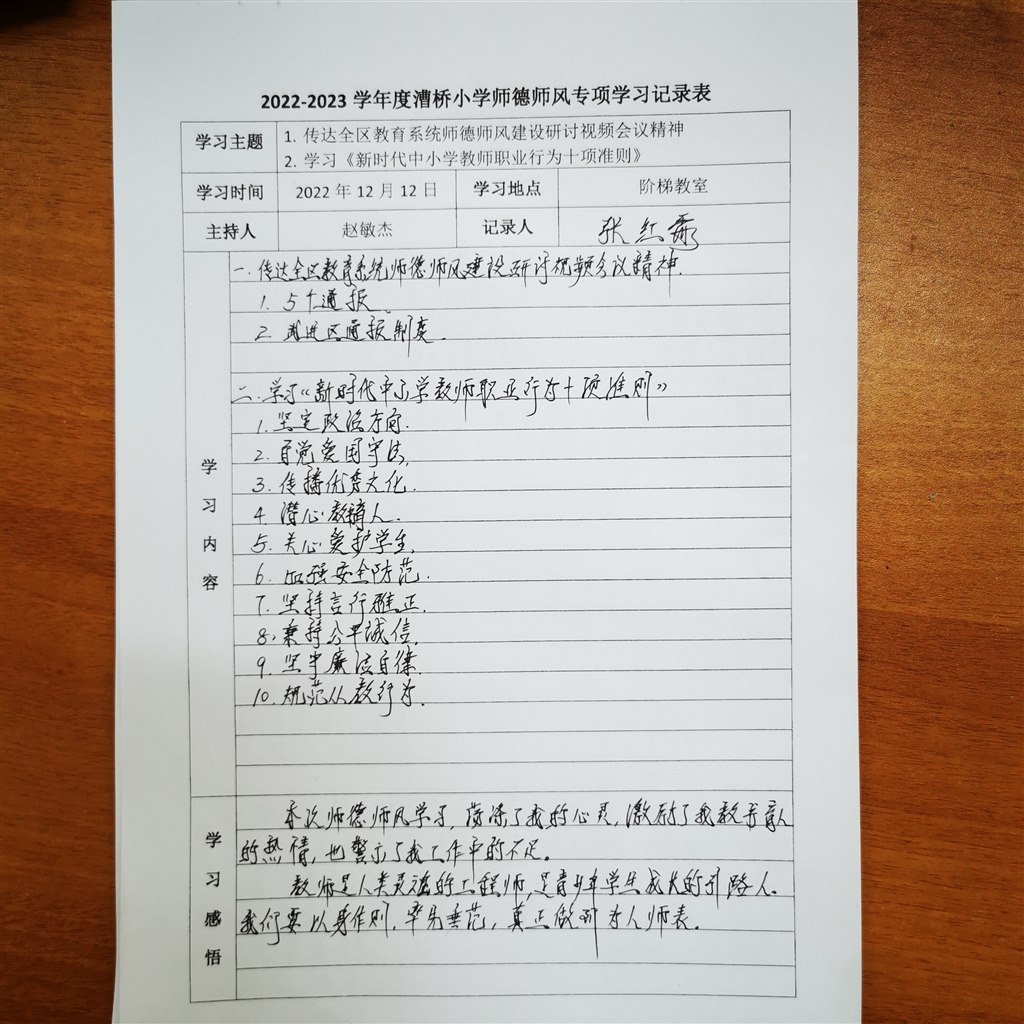 2022-2023 学年度漕桥小学师德师风专项学习记录表
学习主题
1. 传达全区教育系统师德师风建设研讨视频会议精神
2. 学习《新时代中小学教师职业行为十项准则》
学习时间 2022 年 12 月 12 日 学习地点 阶梯教室
主持人 赵敏杰 记录人 张红
学习内容
一. 传达全区教育系统师德师风建设研讨视频会议精神.
1. 5个通报.
2. 武进区通报制度.
二. 学习《新时代中小学教师职业行为十项准则》
1. 坚定政治方向.
2. 自觉爱国守法.
3. 传播优秀文化.
4. 潜心教书育人.
5. 关心爱护学生.
6. 加强安全防范.
7. 坚持言行雅正.
8. 秉持公平诚信.
9. 坚守廉洁自律.
10. 规范从教行为.
学习感悟
本次师德师风学习, 荡涤了我的心灵, 激励了我教书育人
的热情, 也警示了我工作中的不足。
教师是人类灵魂的工程师, 是青少年学生成长的引路人.
我们要以身作则, 率先垂范, 真正做到为人师表.